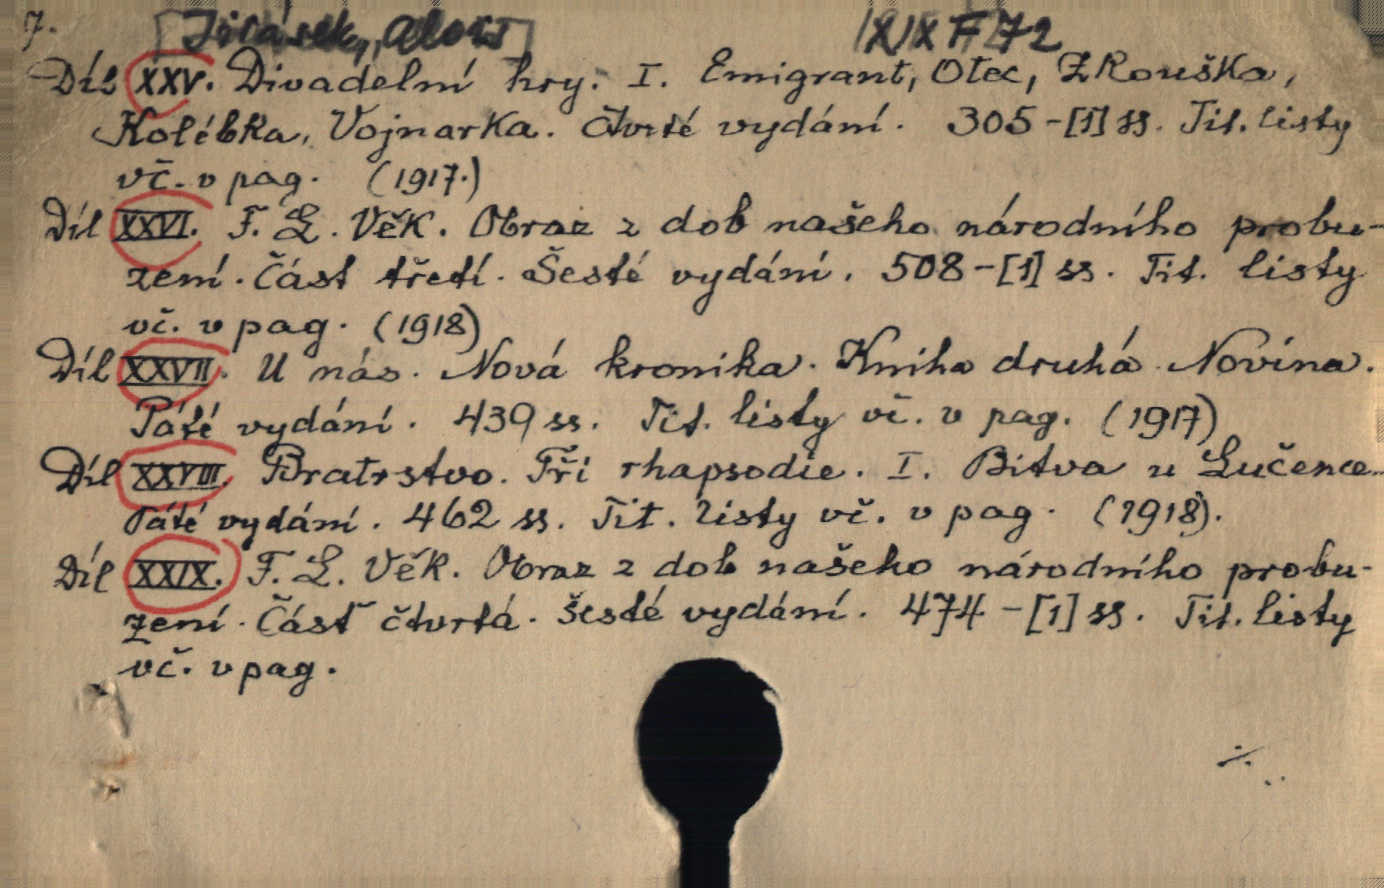 7. Jirásek, Alois XIX F 72
Díl XXV. Divadelní hry. I. Emigrant, Otec, Zkouška,
Kolébka, Vojnarka. Čtvrté vydání. 305-[1] ss. Tit. listy
vč. v pag. (1917.)
Díl XXVI. F. L. Věk. Obraz z dob našeho národního probu-
zení. Část třetí. Šesté vydání. 508-[1] ss. Tit. listy
vč. v pag. (1918)
Díl XXVII. U nás. Nová kronika. Kniha druhá Novina.
Páté vydání. 439 ss. Tit. listy vč. v pag. (1917)
Díl XXVIII. Bratrstvo. Tři rhapsodie. I. Bitva u Lučence.
Páté vydání. 462 ss. Tit. listy vč. v pag. (1918).
Díl XXIX. F. L. Věk. Obraz z dob našeho národního probu-
zení. Část čtvrtá. Šesté vydání. 474-[1] ss. Tit. listy
vč. v pag.
./.